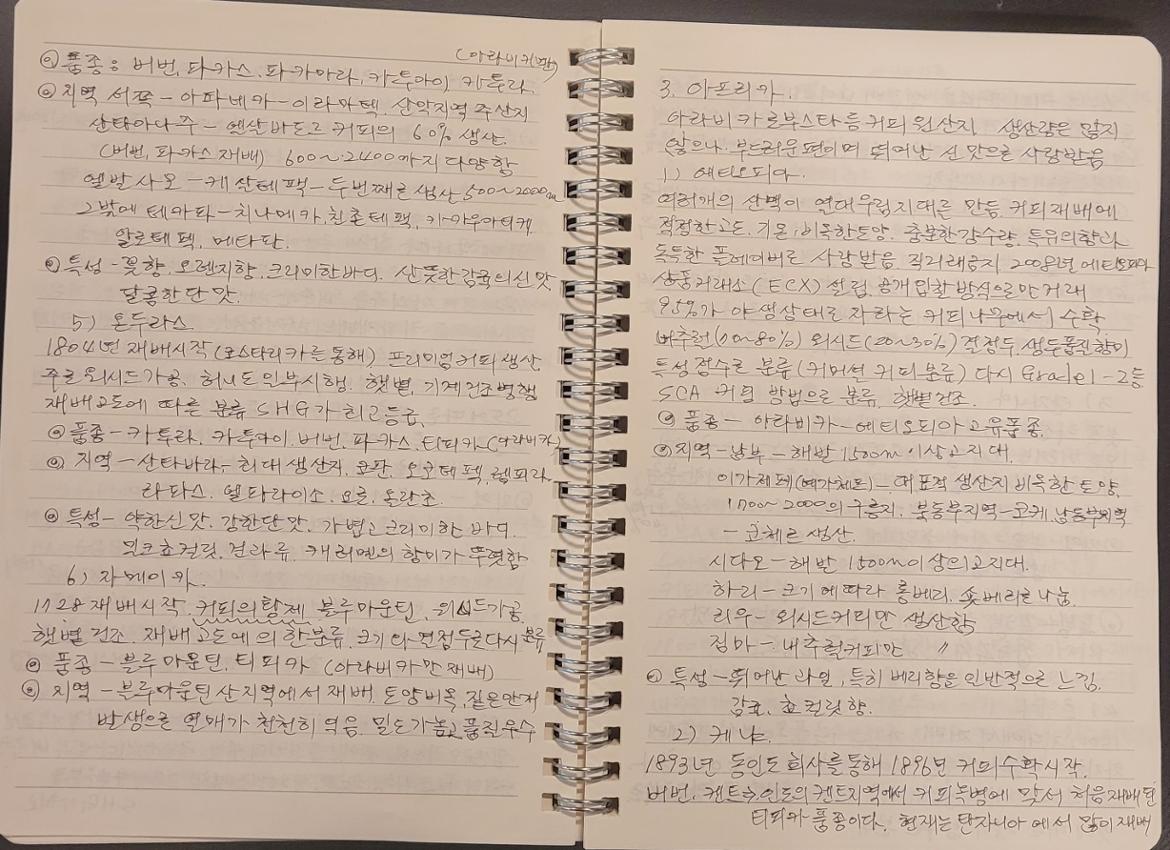 (아라비카만)
⊙ 품종 : 버번, 파카스, 파카마라, 카투아이, 카투라,
⊙ 지역 서쪽 - 아파네카 - 이라마텍, 산악지역 주산지
산타아나 주 - 엘산바도르 커피의 60% 생산.
(버번, 파카스 재배) 600~2400까지 다양함
엘발사모 - 케산테펙 - 두번째로 생산 500~2000m
그밖에 테카파 - 치나메카, 친촌테펙, 카카우아티케,
알로테펙, 메타판.
⊙ 특성 - 꽃향, 오렌지향, 크리미한바디, 산뜻한 감귤의 신맛,
달콤한 단맛.
5) 온두라스
1804년 재배시작 (코스타리카를 통해) 프리미엄 커피 생산,
주로 워시드가공, 허니도 일부시행, 햇볕, 기계건조 병행
재배고도에 따른 분류 SHG가 최고등급,
⊙ 품종 - 카투라, 카투아이, 버번, 파카스, 티피카 (아라비카)
⊙ 지역 - 산타바라, 최대 생산지, 코판, 오코테펙, 렘피라,
라파스, 엘파라이소, 요로, 올란초.
⊙ 특성 - 약한신맛, 강한단맛, 가볍고 크리미한 바디
밀크쵸컬릿, 견과류, 캐러멜의 향미가 뚜렷함
6) 자메이카.
1728 재배시작, 커피의 황제 블루마운틴, 워시드가공,
햇볕 건조, 재배고도에 의한분류, 크기와 결점두로 다시 분류
⊙ 품종 - 블루마운틴, 티피카 (아라비카만 재배)
⊙ 지역 - 블루마운틴 산지역에서 재배, 토양비옥, 짙은안개
발생으로 열매가 천천히 익음, 밀도가높고 품질우수
3. 아프리카.
아라비카로부스타등 커피 원산지 생산량은 많지
않으나, 부드러운편이며 뛰어난 신맛으로 사랑받음
1) 에티오피아.
여러개의 산맥이 열대우림지대를 만듬, 커피재배에
적절한고도, 기온, 비옥한토양, 충분한강수량, 특유의향과
독특한 플레이버로 사랑받음, 직거래금지, 2008년 에티오피아
상품거래소 (ECX) 설립, 공개입찰방식으로만거래
95%가 야생상태로 자라는 커피나무에서 수확,
내추럴(70~80%) 워시드(20~30%) 결점두, 생두품질향미
특성점수로 분류 (커머셜 커피분류) 다시 Grade1 - 2등
SCA 커핑 방법으로 분류, 햇볕건조.
⊙ 품종 - 아라비카 - 에티오피아 고유품종.
⊙ 지역 - 남부 - 해발 1500m 이상고지대,
이가체페(예가체프) - 대표적 생산지 비옥한 토양,
1700~2000의 구릉지, 북동부지역 - 코케, 남동부지역
- 코체르 생산.
시다모 - 해발 1500m이상의 고지대.
하라 - 크기에따라 롱베리, 숏베리로 나눔,
리무 - 워시드커피만 생산함
짐마 - 내추럴커피만 〃
⊙ 특성 - 뛰어난 과일, 특히 베리향을 일반적으로 느낌,
감귤, 쵸컬릿향.
2) 케냐.
1893년 동인도회사를통해 1896년 커피수확시작,
버번, 켄트 인도의 켄트지역에서 커피녹병에 맞서 처음재배된
티피카 품종이다, 현재는 탄자니아에서 많이재배